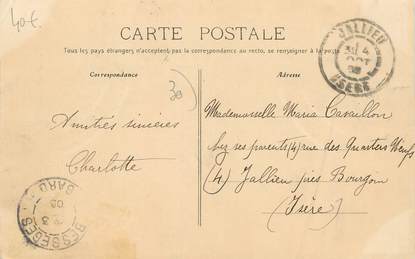 40€
CARTE POSTALE
Tous les pays étrangers n'acceptent pas la correspondance au recto, se renseigner à la poste
Correspondance
Adresse
JALLIEU
4
OCT
ISERE
30
Amitiés sincères
Charlotte
Mademoiselle Maria Cavaillon
chez ses parents (4) rue des Quartiers Neufs
(4) Jallieu près Bourgoin
(Isère)
BESSEGES
GARD